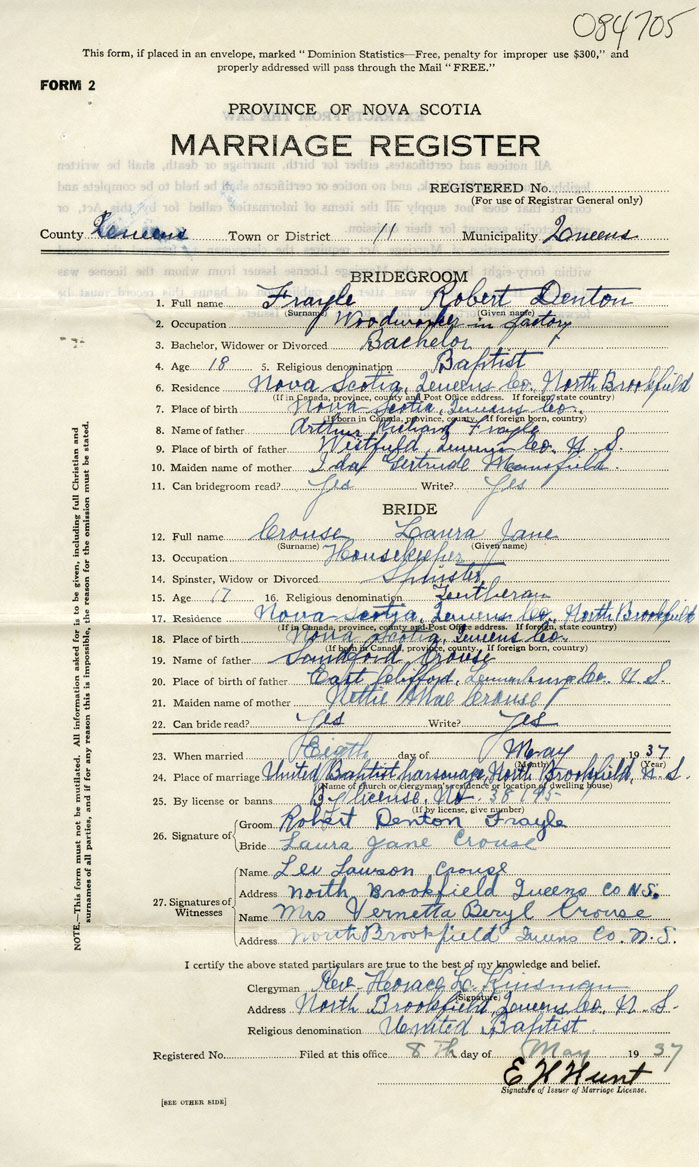 084705
This form, if placed in an envelope, marked "Dominion Statistics—Free, penalty for improper use $300," and
properly addressed will pass through the Mail "FREE."
FORM 2
PROVINCE OF NOVA SCOTIA
MARRIAGE REGISTER
REGISTERED No.
(For use of Registrar General only)
County Queens Town or District 11 Municipality Queens
BRIDEGROOM
1. Full name Frayle Robert Denton
(Surname) (Given name)
2. Occupation Woodworker in factory
3. Bachelor, Widower or Divorced Bachelor
4. Age 18 5. Religious denomination Baptist
6. Residence Nova Scotia, Queens Co, North Brookfield
(If in Canada, province, county and Post Office address. If foreign, state country)
7. Place of birth Nova Scotia, Queens Co.
(If born in Canada, province, county. If foreign born, country)
8. Name of father Arthur Richard Frayle
9. Place of birth of father Westfield, Queens Co. N. S.
10. Maiden name of mother Ida Gertrude Mansfield.
11. Can bridegroom read? Yes Write? Yes
BRIDE
12. Full name Crouse Laura Jane
(Surname) (Given name)
13. Occupation Housekeeper
14. Spinster, Widow or Divorced Spinster
15. Age 17 16. Religious denomination Lutheran
17. Residence Nova Scotia, Queens Co, North Brookfield
(If in Canada, province, county and Post Office address. If foreign, state country)
18. Place of birth Nova Scotia, Queens Co.
(If born in Canada, province, county. If foreign born, country)
19. Name of father Crouse
20. Place of birth of father East Clifford, Lunenburg Co. N. S.
21. Maiden name of mother Nettie Mae Crouse
22. Can bride read? Yes Write? Yes
23. When married Eigth day of May 1937
(Month) (Year)
24. Place of marriage United Baptist parsonage, North Brookfield, N. S.
(Name of church or clergyman's presidence or location of dwelling house)
25. By license or banns By license, No.
(If by license, give number)
26. Signature of Groom Robert Denton Frayle
Bride Laura Jane Crouse
27. Signatures of Witnesses Name Lawson Crouse
Address North Brookfield Queens Co N.S.
Name Mrs Vernetta Beryl Crouse
Address North Brookfield Queens Co. N. S.
I certify the above stated particulars are true to the best of my knowledge and belief.
Clergyman Rev. Horace L. Kinsman
(Signature)
Address North Brookfield, Queens Co, N. S.
Religious denomination United Baptist
Registered No. Filed at this office 8 Th day of May 1937
E H Hunt
Signature of Issuer of Marriage License.
[SEE OTHER SIDE]
NOTE.—This form must not be mutilated. All information asked for is to be given, including full Christian and
surnames of all parties, and if for any reason this is impossible, the reason for the omission must be stated.